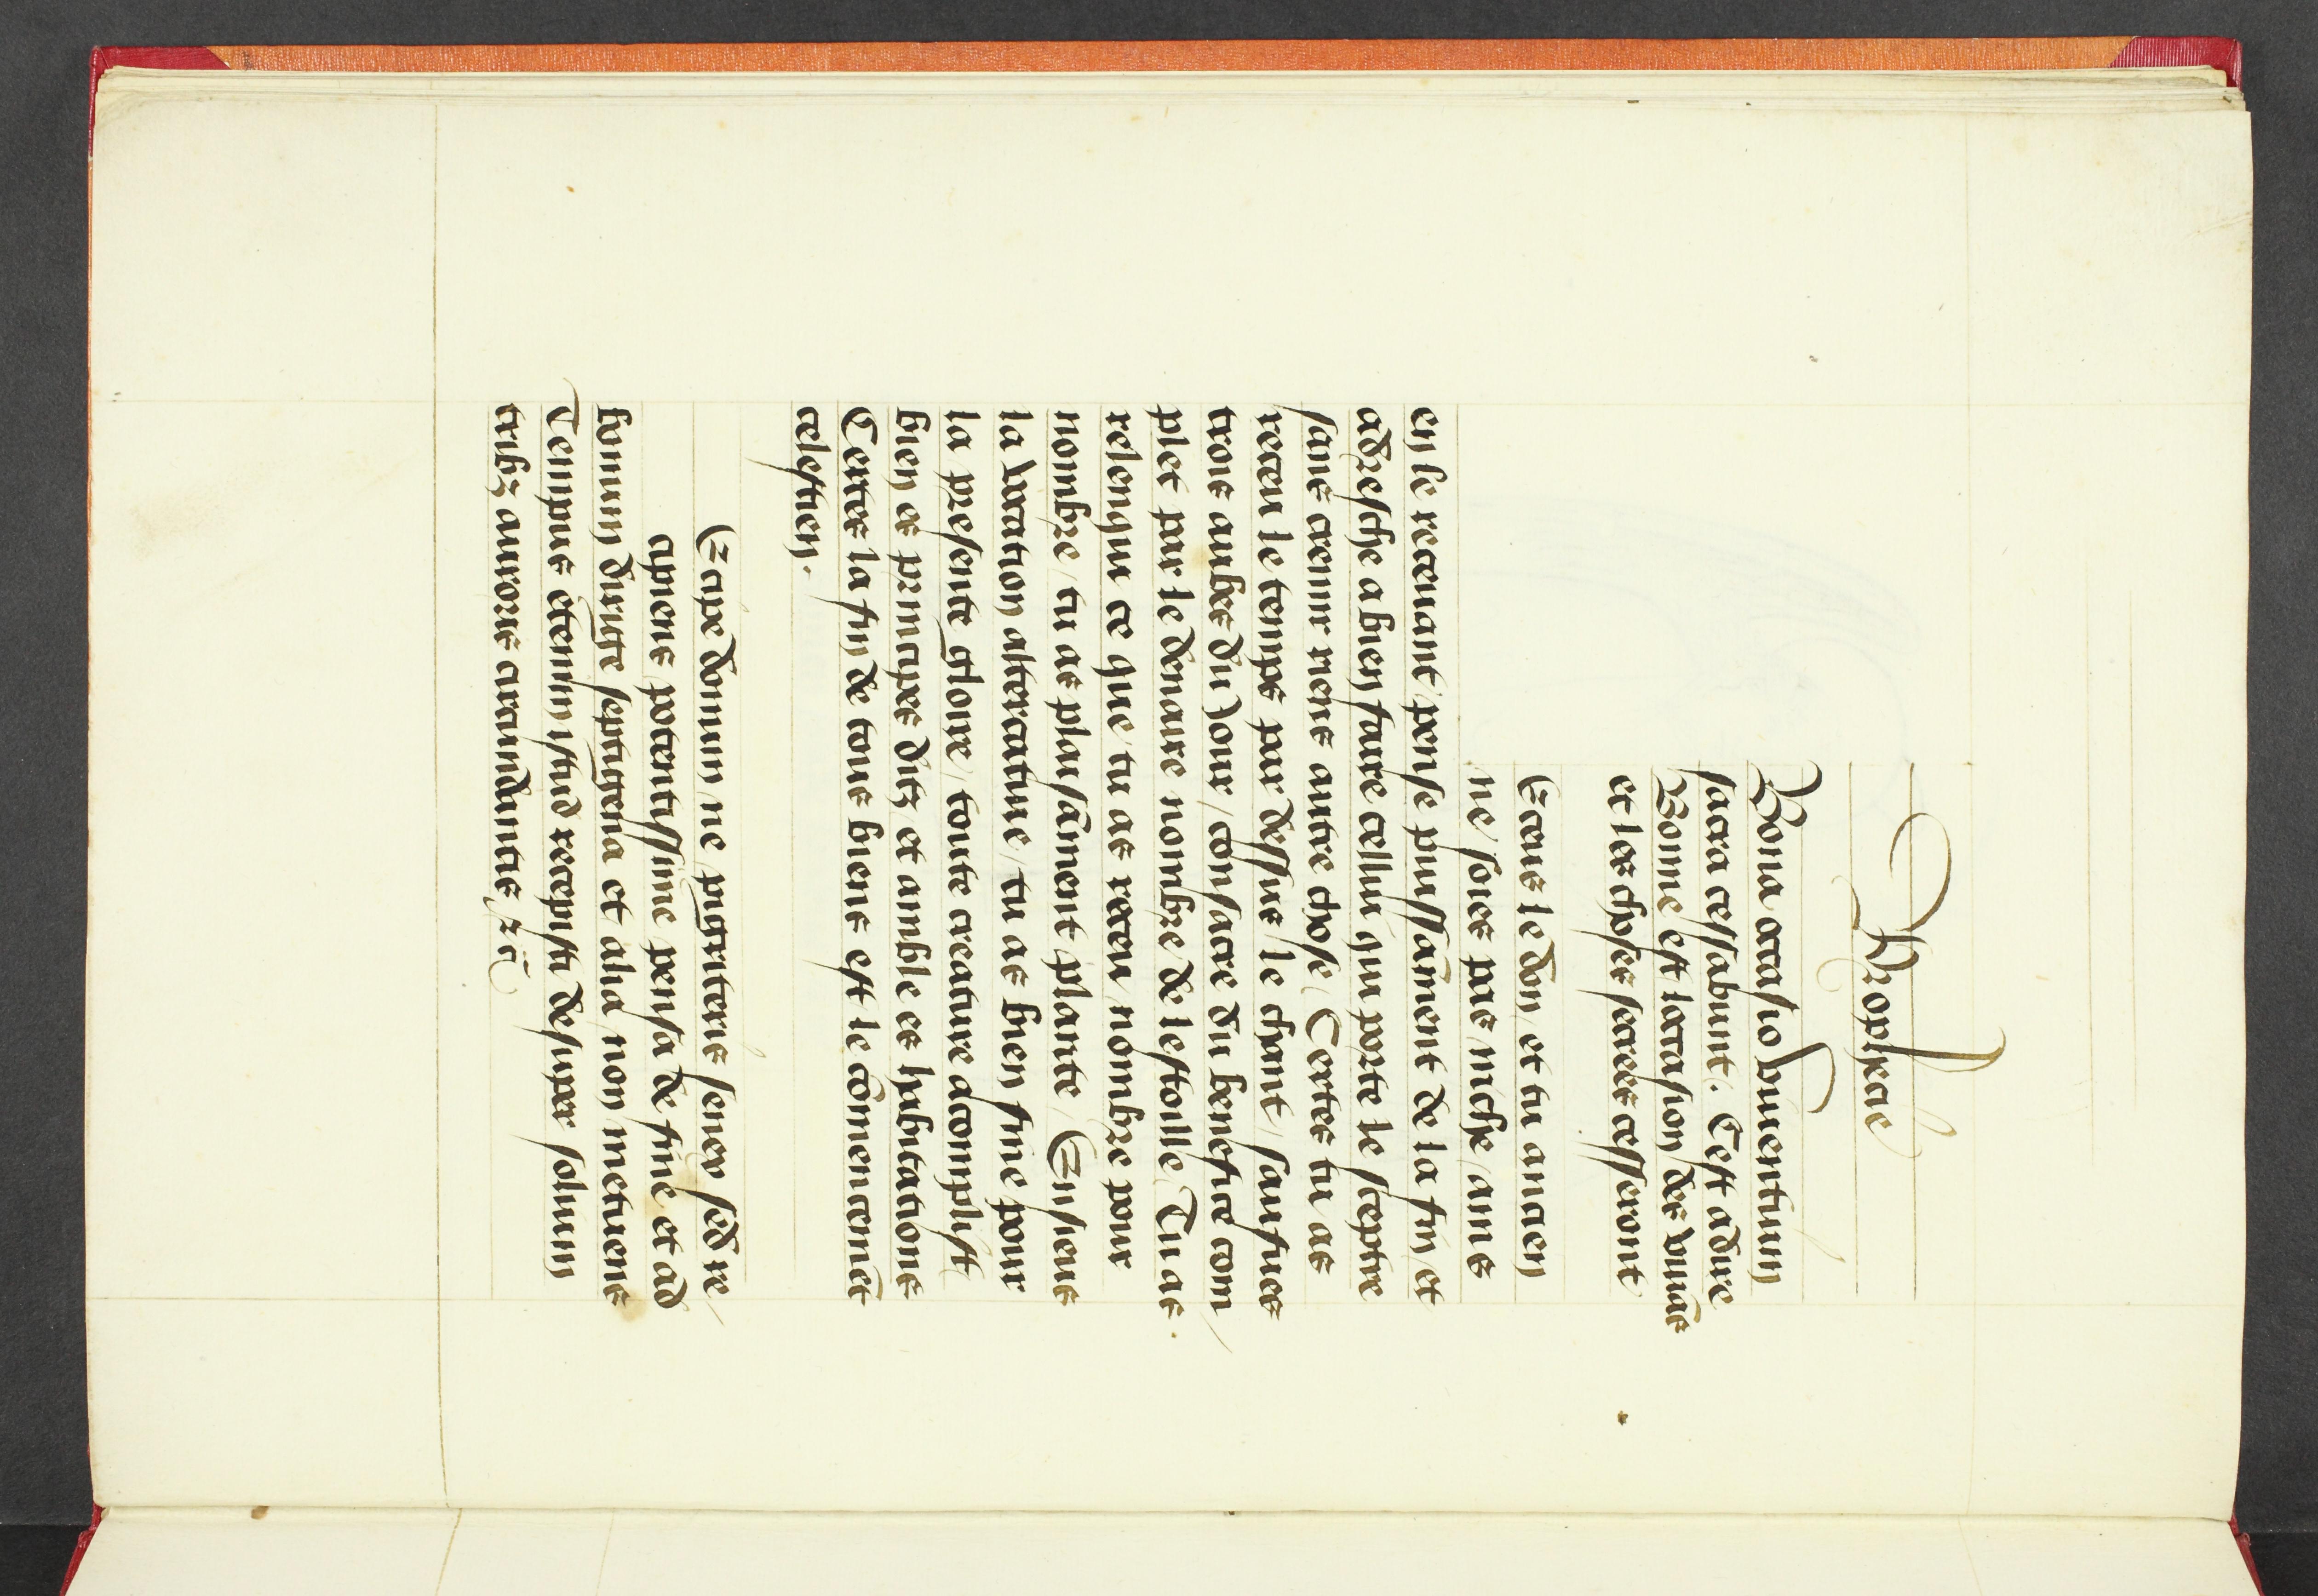 Prophecie
Bona occasio Viventium
sacra cessabunt. Cest adire
Bonne est loccasion des vivãs
et les choses sacrees cesseront
Recous le don, et tu ancien
ne soies pas niche, ains
en le recevant, pense puissãment de la fin, et
adresche a bien faire cellui qui porte le sceptre
sans cremir riens autre chose, Certes tu as
receu le temps par dessus le chant, saufues
trois aubes du Jour, consacre du benefice com
plet par le denaire nombre de lestoille, Tu as
relenqui ce que, tu as receu, nõmbre pour
nombre, tu as plaisãment plante, Ensieus
la vocation altercative, tu as bien fine pour
la presente gloire, toute creature acomplist,
bien es principes ditz, et amble es habitations
Certes la fin de tous biens est le cõmencemẽt
celestien.
Excipe donum, ne pigriteris senex sed re,
apiens potentissime pensa de fine, et ad
bonum dirige sceptigera et alia, non metuens
Tempus etenim istud recepisti desuper solum
tribz auroris circundatis, zc̃